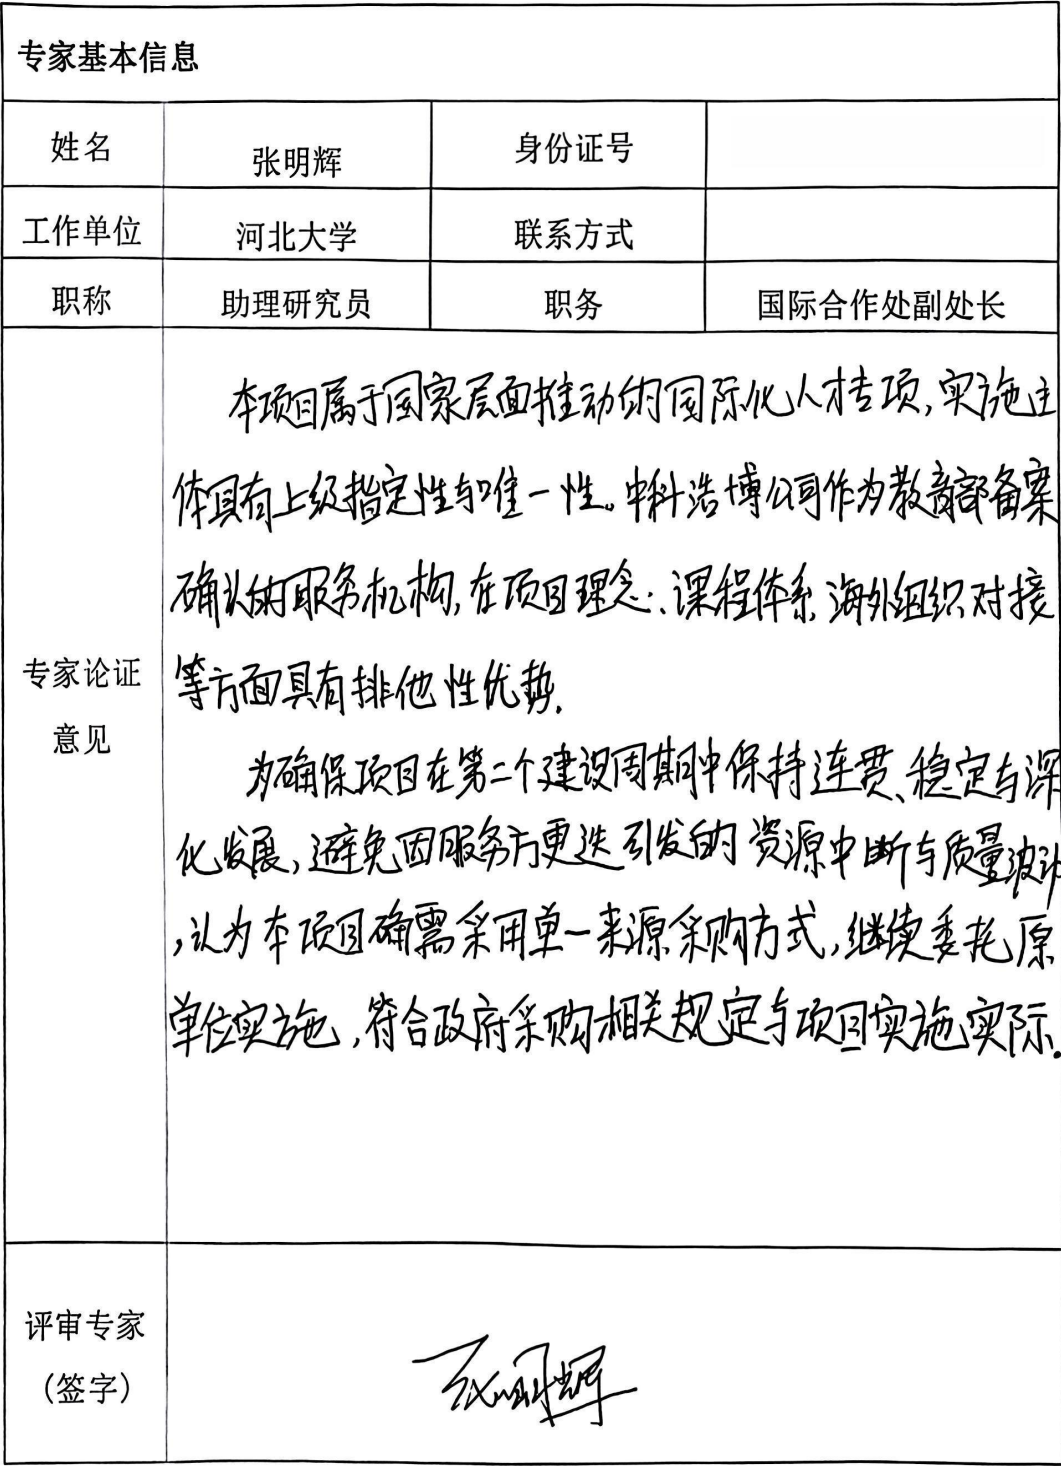 专家基本信息
姓名 张明辉 身份证号
工作单位 河北大学 联系方式
职称 助理研究员 职务 国际合作处副处长
专家论证意见
本项目属于国家层面推动的国际化人才专项,实施主
体具有上级指定性与唯一性。中科浩博公司作为教育部备案
确认的服务机构,在项目理念、课程体系、海外组织对接
等方面具有排他性优势.
为确保项目在第二个建设周期中保持连贯、稳定与深
化发展,避免因服务方更迭引发的资源中断与质量波动
,认为本项目确需采用单一来源采购方式,继续委托原
单位实施,符合政府采购相关规定与项目实施实际.
评审专家
(签字)
张明辉